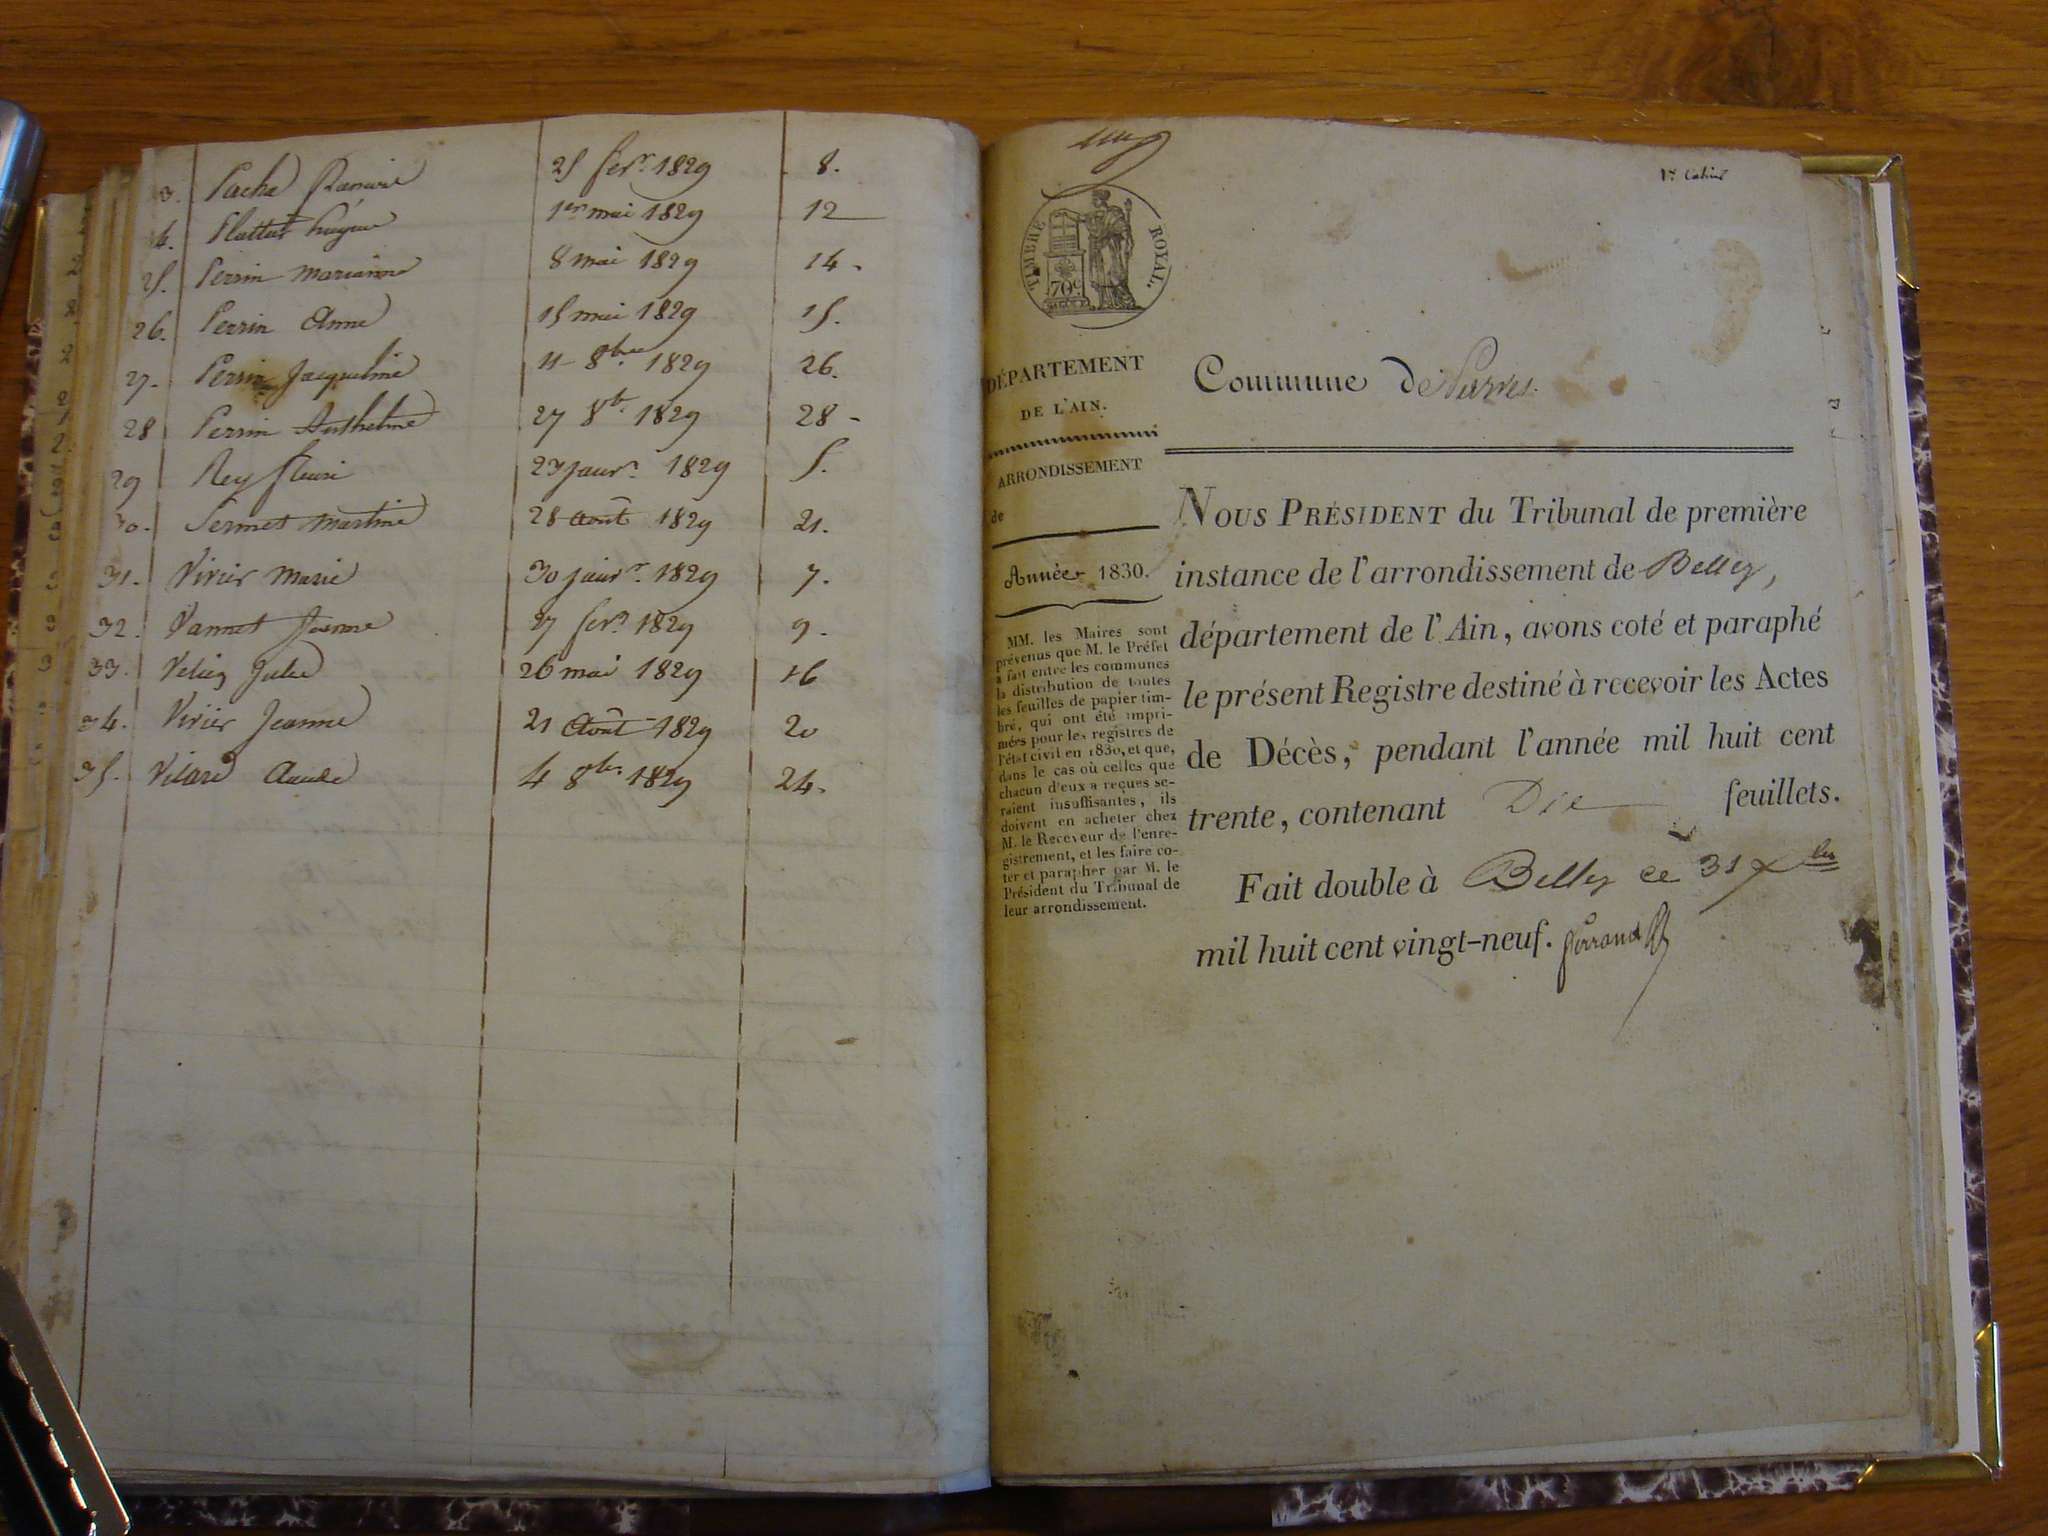 3. Pacha 25 fevr. 1829 8.
4. Plattet 1er mai 1829 12
25. Perrin marianne 8 mai 1829 14.
26. Perrin Anne 15 mai 1829 15.
27. Perrin Jacqueline 11 8bre 1829 26.
28 Perrin Anthelme 27 8bre 1829 28
29 Rey fleuri 23 janvr. 1829 5.
30. Sermet martine 28 Août 1829 21.
31. Virier Marie 30 janvr. 1829 7.
32. Vannet Jeanne 27 fevr. 1829 9.
33. Julie 26 mai 1829 16
34. Virier Jeanne 21 Août 1829 20
35. Vilard Claude 4 8bre 1829 24.
1er Cahier
TIMBRE ROYAL.
70c
DÉPARTEMENT
DE L'AIN.
ARRONDISSEMENT
de
Année 1830.
MM. les Maires sont
prévenus que M. le Préfet
a fait entre les communes
la distribution de toutes
les feuilles de papier tim-
bré, qui ont été impri-
mées pour les registres de
l'état civil en 1830, et que,
dans le cas où celles que
chacun d'eux a reçues se-
raient insuffisantes, ils
doivent en acheter chez
M. le Receveur de l'enre-
gistrement, et les faire co-
ter et parapher par M. le
Président du Tribunal de
leur arrondissement.
Commune de
NOUS PRÉSIDENT du Tribunal de première
instance de l'arrondissement de Belley,
département de l'Ain, avons coté et paraphé
le présent Registre destiné à recevoir les Actes
de Décès, pendant l'année mil huit cent
trente, contenant Dix feuillets.
Fait double à Belley ce 31 Xbre
mil huit cent vingt-neuf.